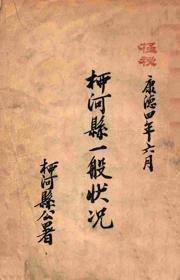 極秘
康德四年六月
柳河縣一般狀況
柳河縣公署